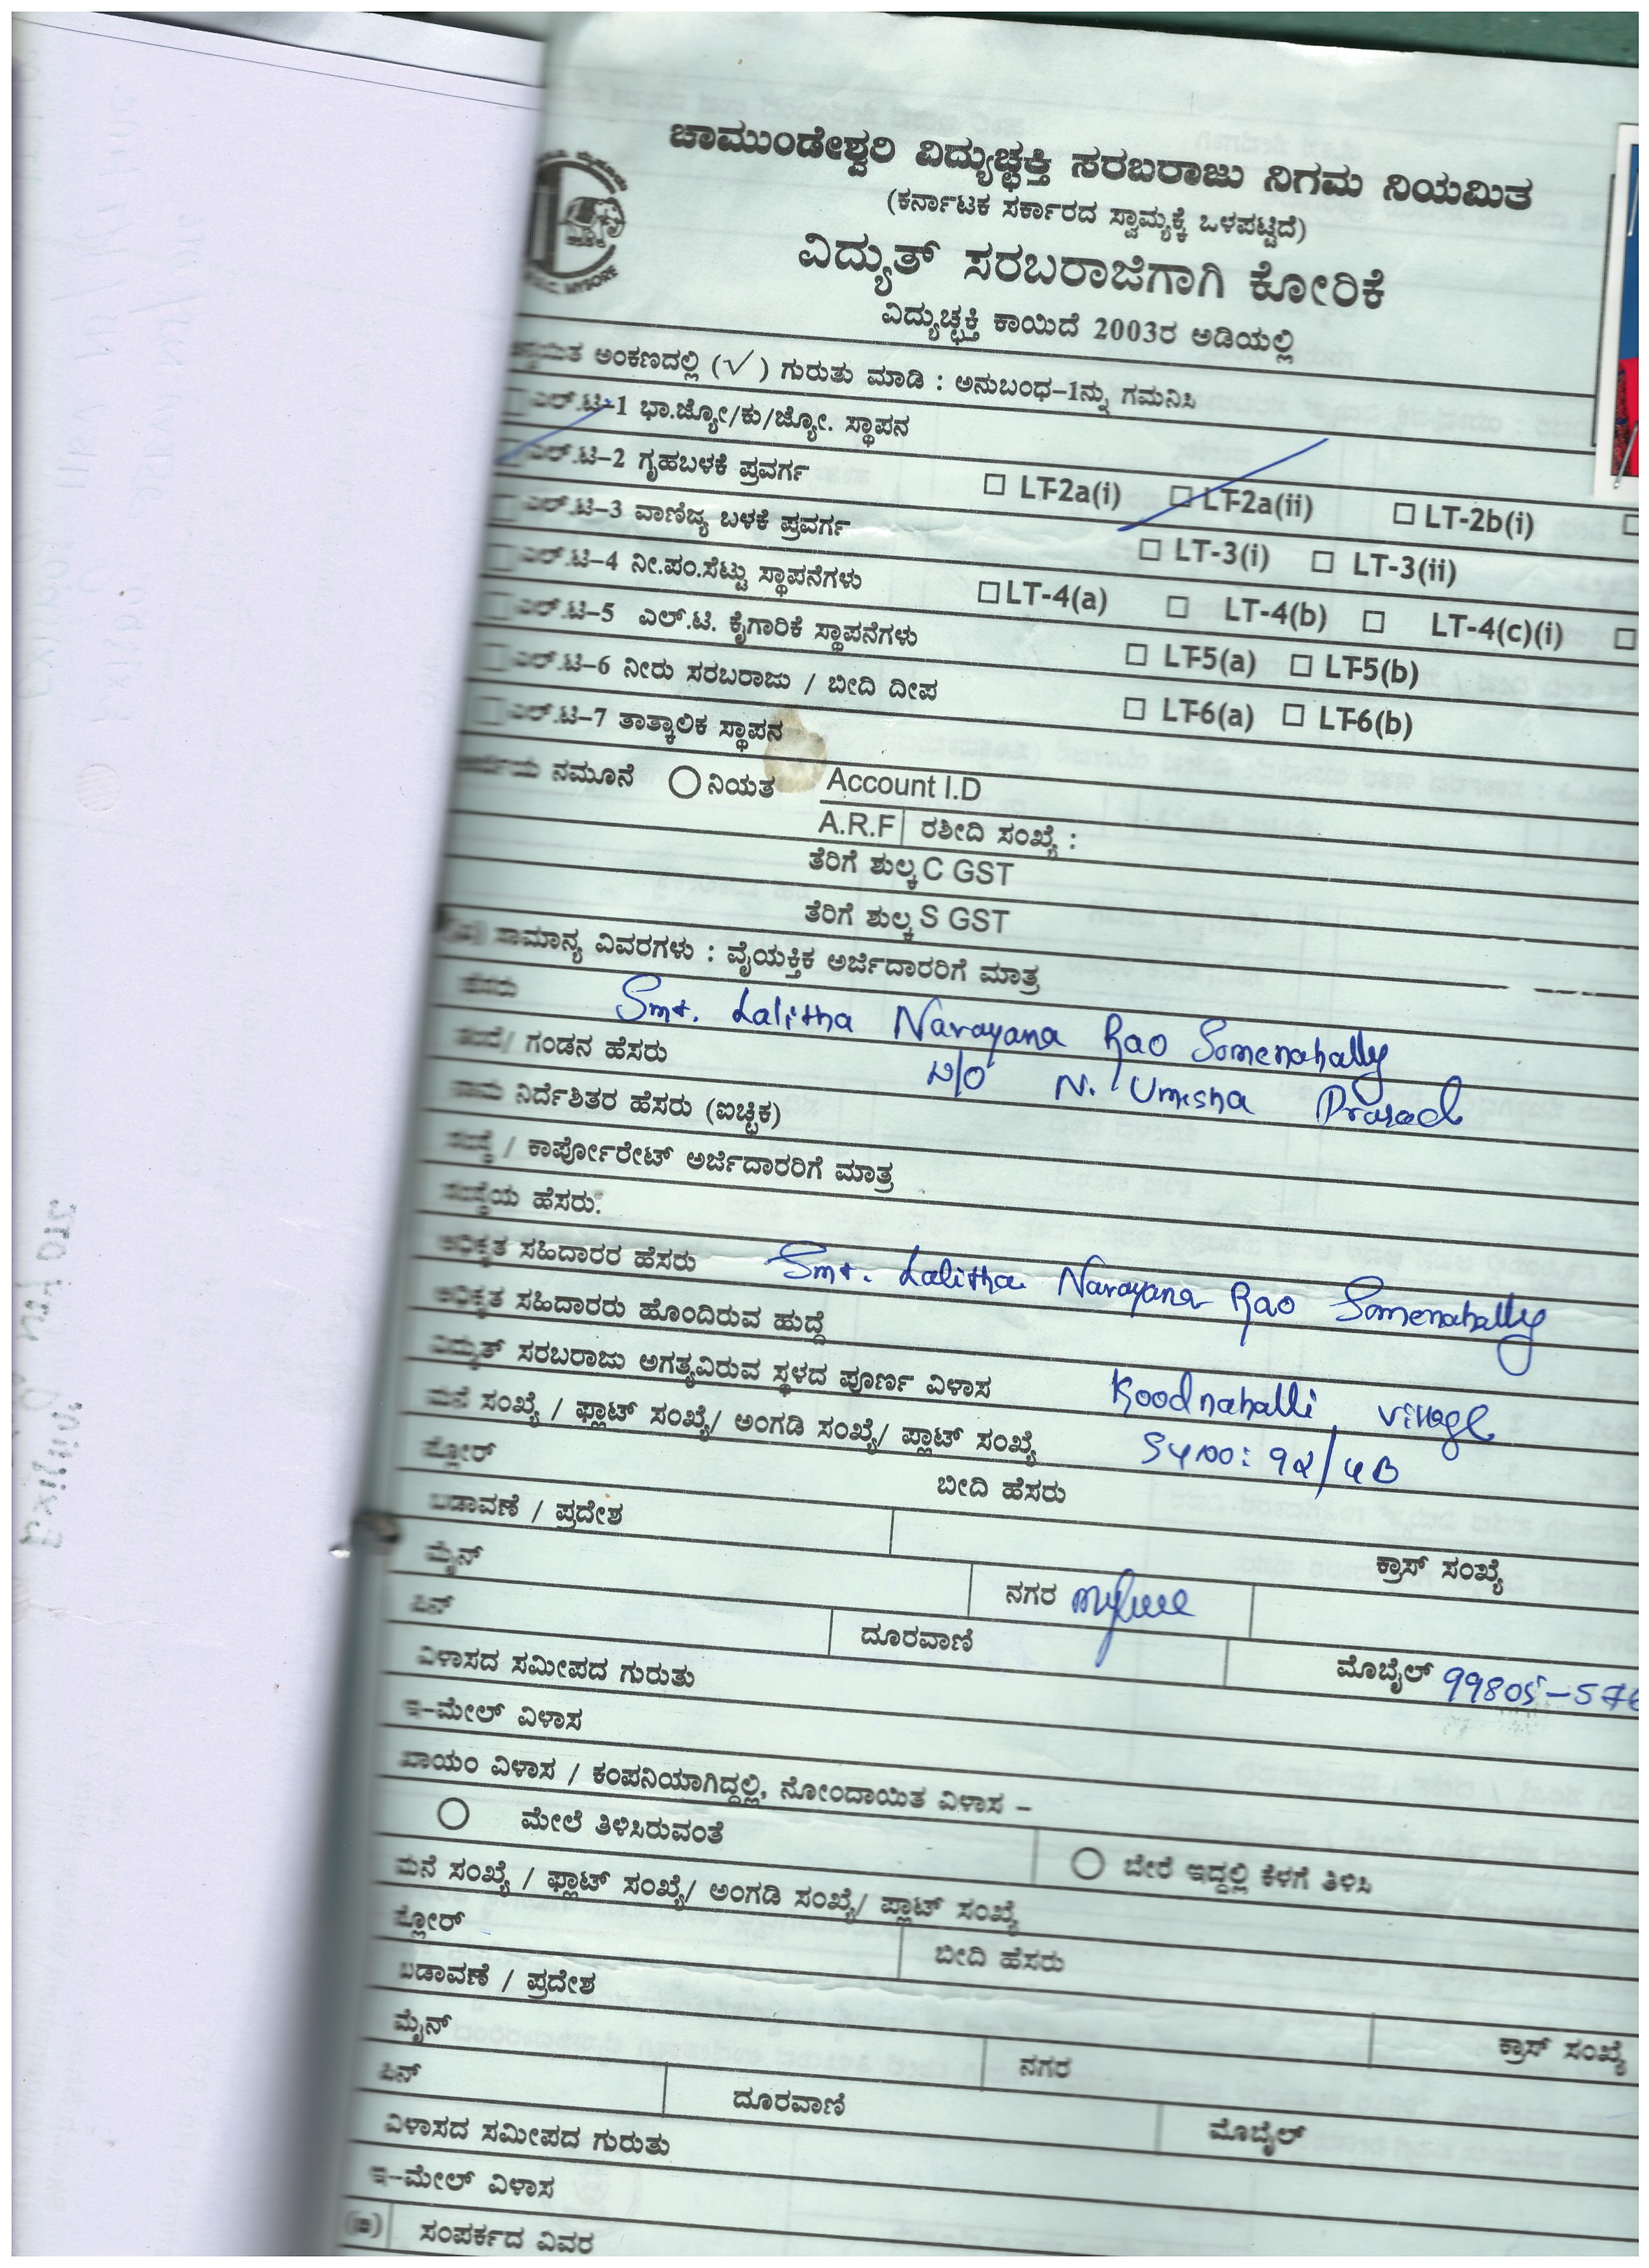 ಚಾಮುಂಡೇಶ್ವರಿ ವಿದ್ಯುಚ್ಛಕ್ತಿ ಸರಬರಾಜು ನಿಗಮ ನಿಯಮಿತ
(ಕರ್ನಾಟಕ ಸರ್ಕಾರದ ಸ್ವಾಮ್ಯಕ್ಕೆ ಒಳಪಟ್ಟಿದೆ)
ವಿದ್ಯುತ್ ಸರಬರಾಜಿಗಾಗಿ ಕೋರಿಕೆ
ವಿದ್ಯುಚ್ಛಕ್ತಿ ಕಾಯಿದೆ 2003ರ ಅಡಿಯಲ್ಲಿ
MYSORE
ಅಂಕಣದಲ್ಲಿ (√) ಗುರುತು ಮಾಡಿ : ಅನುಬಂಧ-1ನ್ನು ಗಮನಿಸಿ
ಎಲ್.ಟಿ-1 ಭಾ.ಜ್ಯೋ/ಕು/ಜ್ಯೋ. ಸ್ಥಾಪನ
ಎಲ್.ಟಿ-2 ಗೃಹಬಳಕೆ ಪ್ರವರ್ಗ LT-2a(i) LT-2a(ii) LT-2b(i)
ಎಲ್.ಟಿ-3 ವಾಣಿಜ್ಯ ಬಳಕೆ ಪ್ರವರ್ಗ LT-3(i) LT-3(ii)
ಎಲ್.ಟಿ-4 ನೀ.ಪಂ.ಸೆಟ್ಟು ಸ್ಥಾಪನೆಗಳು LT-4(a) LT-4(b) LT-4(c)(i)
ಎಲ್.ಟಿ-5 ಎಲ್.ಟಿ. ಕೈಗಾರಿಕೆ ಸ್ಥಾಪನೆಗಳು LT-5(a) LT-5(b)
ಎಲ್.ಟಿ-6 ನೀರು ಸರಬರಾಜು / ಬೀದಿ ದೀಪ LT-6(a) LT-6(b)
ಎಲ್.ಟಿ-7 ತಾತ್ಕಾಲಿಕ ಸ್ಥಾಪನ
ನಮೂನೆ ನಿಯತ Account I.D
A.R.F ರಶೀದಿ ಸಂಖ್ಯೆ :
ತೆರಿಗೆ ಶುಲ್ಕ C GST
ತೆರಿಗೆ ಶುಲ್ಕ S GST
ಸಾಮಾನ್ಯ ವಿವರಗಳು : ವೈಯಕ್ತಿಕ ಅರ್ಜಿದಾರರಿಗೆ ಮಾತ್ರ
ಹೆಸರು Smt. Lalitha Narayana Rao Somenahally
ತಂದೆ/ ಗಂಡನ ಹೆಸರು W/O N. Umesha Prasad
ನಾಮ ನಿರ್ದೇಶಿತರ ಹೆಸರು (ಐಚ್ಛಿಕ)
ಸಂಸ್ಥೆ / ಕಾರ್ಪೋರೇಟ್ ಅರ್ಜಿದಾರರಿಗೆ ಮಾತ್ರ
ಸಂಸ್ಥೆಯ ಹೆಸರು:
ಅಧಿಕೃತ ಸಹಿದಾರರ ಹೆಸರು Smt. Lalitha Narayana Rao Somenahally
ಅಧಿಕೃತ ಸಹಿದಾರರು ಹೊಂದಿರುವ ಹುದ್ದೆ
ವಿದ್ಯುತ್ ಸರಬರಾಜು ಅಗತ್ಯವಿರುವ ಸ್ಥಳದ ಪೂರ್ಣ ವಿಳಾಸ Koodnahalli village
ಮನೆ ಸಂಖ್ಯೆ / ಫ್ಲಾಟ್ ಸಂಖ್ಯೆ/ ಅಂಗಡಿ ಸಂಖ್ಯೆ/ ಪ್ಲಾಟ್ ಸಂಖ್ಯೆ Sy no: 92/4B
ಫ್ಲೋರ್ ಬೀದಿ ಹೆಸರು
ಬಡಾವಣೆ / ಪ್ರದೇಶ ಕ್ರಾಸ್ ಸಂಖ್ಯೆ
ಮೈನ್ ನಗರ
ಪಿನ್ ದೂರವಾಣಿ ಮೊಬೈಲ್ 99805-576
ವಿಳಾಸದ ಸಮೀಪದ ಗುರುತು
ಇ-ಮೇಲ್ ವಿಳಾಸ
ಖಾಯಂ ವಿಳಾಸ / ಕಂಪನಿಯಾಗಿದ್ದಲ್ಲಿ, ನೋಂದಾಯಿತ ವಿಳಾಸ –
ಮೇಲೆ ತಿಳಿಸಿರುವಂತೆ ಬೇರೆ ಇದ್ದಲ್ಲಿ ಕೆಳಗೆ ತಿಳಿಸಿ
ಮನೆ ಸಂಖ್ಯೆ / ಫ್ಲಾಟ್ ಸಂಖ್ಯೆ/ ಅಂಗಡಿ ಸಂಖ್ಯೆ/ ಪ್ಲಾಟ್ ಸಂಖ್ಯೆ
ಫ್ಲೋರ್ ಬೀದಿ ಹೆಸರು
ಬಡಾವಣೆ / ಪ್ರದೇಶ ಕ್ರಾಸ್ ಸಂಖ್ಯೆ
ಮೈನ್ ನಗರ
ಪಿನ್ ದೂರವಾಣಿ ಮೊಬೈಲ್
ವಿಳಾಸದ ಸಮೀಪದ ಗುರುತು
ಇ-ಮೇಲ್ ವಿಳಾಸ
ಸಂಪರ್ಕದ ವಿವರ